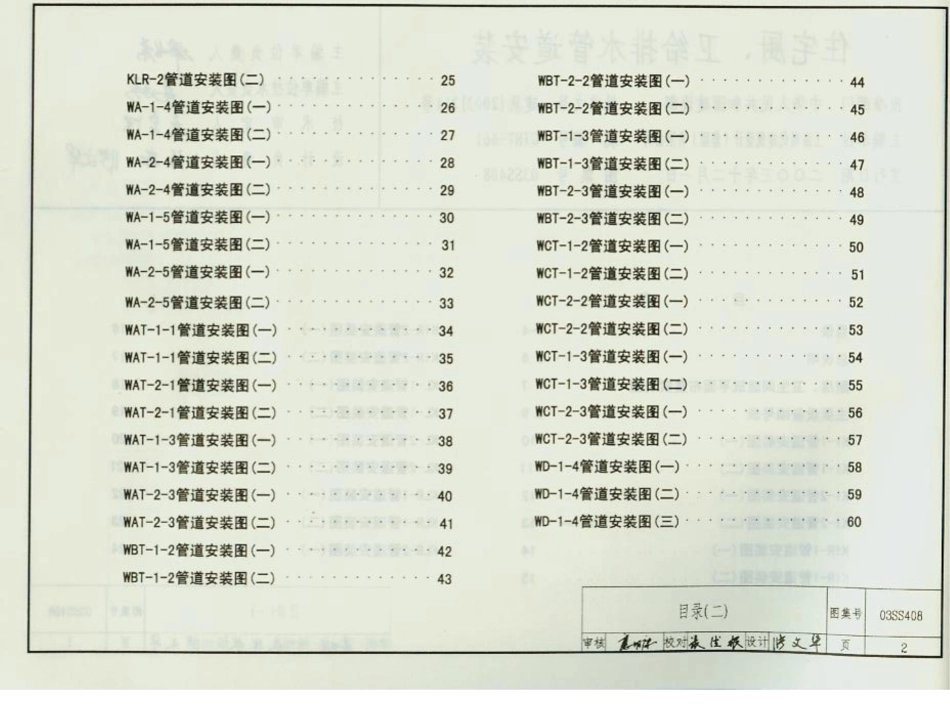 KLR-2管道安装图(二) 25
WA-1-4管道安装图(一) 26
WA-1-4管道安装图(二) 27
WA-2-4管道安装图(一) 28
WA-2-4管道安装图(二) 29
WA-1-5管道安装图(一) 30
WA-1-5管道安装图(二) 31
WA-2-5管道安装图(一) 32
WA-2-5管道安装图(二) 33
WAT-1-1管道安装图(一) 34
WAT-1-1管道安装图(二) 35
WAT-2-1管道安装图(一) 36
WAT-2-1管道安装图(二) 37
WAT-1-3管道安装图(一) 38
WAT-1-3管道安装图(二) 39
WAT-2-3管道安装图(一) 40
WAT-2-3管道安装图(二) 41
WBT-1-2管道安装图(一) 42
WBT-1-2管道安装图(二) 43
WBT-2-2管道安装图(一) 44
WBT-2-2管道安装图(二) 45
WBT-1-3管道安装图(一) 46
WBT-1-3管道安装图(二) 47
WBT-2-3管道安装图(一) 48
WBT-2-3管道安装图(二) 49
WCT-1-2管道安装图(一) 50
WCT-1-2管道安装图(二) 51
WCT-2-2管道安装图(一) 52
WCT-2-2管道安装图(二) 53
WCT-1-3管道安装图(一) 54
WCT-1-3管道安装图(二) 55
WCT-2-3管道安装图(一) 56
WCT-2-3管道安装图(二) 57
WD-1-4管道安装图(一) 58
WD-1-4管道安装图(二) 59
WD-1-4管道安装图(三) 60
目录(二) 图集号 03SS408
审核 校对 设计 页 2